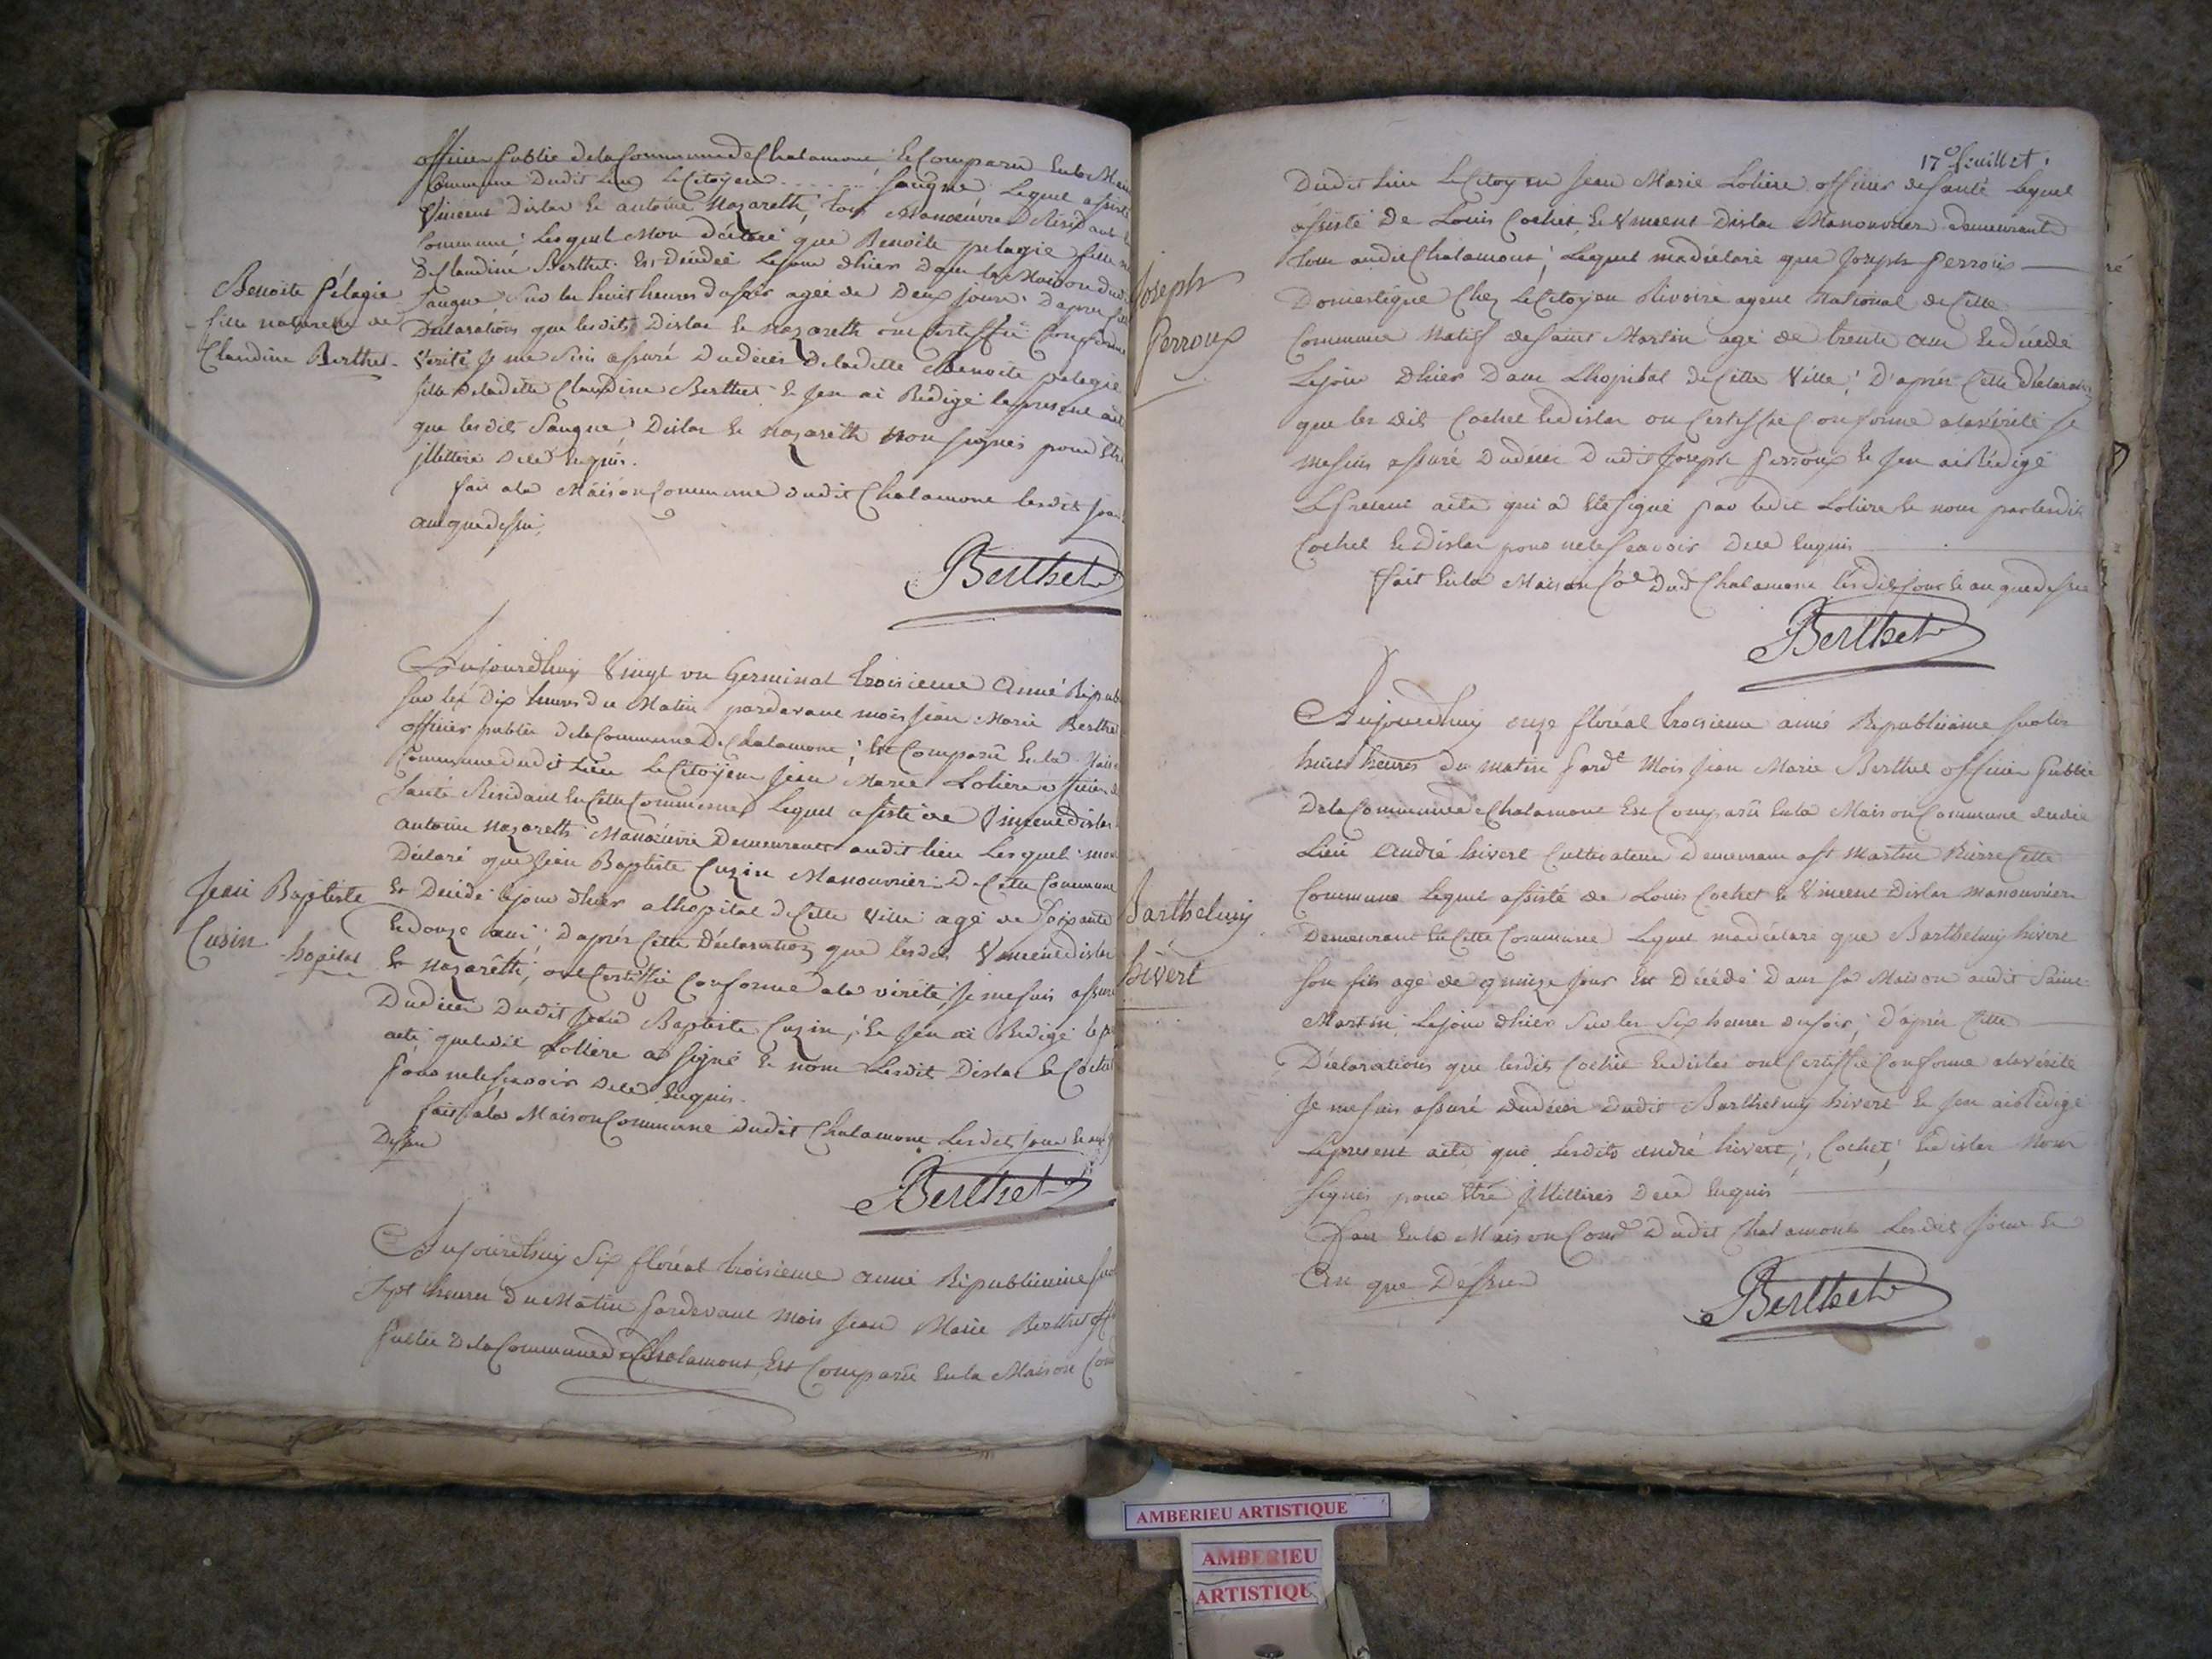 officier public de la Commune de Chalamont Est Comparu En la Mais
Commune Dudit Lieu Le Citoyen ........ Saugne Lequel assisté
Vincent Dislar Et antoine Nazareth, tous Manoeuvre Résidant
Commune; Lesquel Mon déclaré que Benoite pelagie fille
De Claudine Berthet Est Décédéé Lejour dhier Dans la Maison dud
Benoite Pélagie
fille naturelle de
Claudine Berthet.
Saugne Sur les huit heures Dusoir ageé de Deux jours; D'apres
Déclarations que lesdits Dislar Et Nazareth ont Certiffié Conforme
Vérité Je me Suis assuré Dudécès Deladitte Benoite pelagie
fille Deladitte Claudine Berthet Et Jen ai Rédigé lepresent acte
que lesdits Saugne Dislar Et Nazareth Non Signés pour Etre
jlliteré Dece Enquis.
fait ala Maison Commune dudit Chalamont lesdits jour
an que dessus
Berthet
Aujourdhuy Vingt un Germinal troisieme Anné Répub
Sur les Dix heures du Matin pardevant mois Jean Marie Berthe
officier public dela Commune De Chalamont; Est Comparû En la Maiso
Commune dudit Lieu Le Citoyen Jean Marie Loliere officier de
Santé Résidant En Cette Commune Lequel assisté de Vincent Dislar
antoine Nazareth Manoeuvre Demeurant audit lieu Lesquel mon
Déclaré que Jean Baptiste Cuzin Manouvrier De Cette Commune
Jean Baptiste
Cusin hopital
Est Décédé lejour dhier alhopital de Cette Ville agé de Soixante
Et douze ans; D'aprés Cette Déclaration que lesdits Vincent Dislar
Et Nazareth, ont Certiffié Conforme ala vérité Je me suis assuré
Dudécès Dudit Jean Baptiste Cuzin, Et Jen ai Rédigé le p
acte queledit Loliere a signé Et non Lesdits Dislar Et Cochet
pour nelesçavoir Dece Enquis.
fait ala Maison Commune Dudit Chalamont Lesdits Jour Et an q
Dessus
Berthet
Aujourdhuy Six floréal troisieme anné Républicaine Sur
Sept heures Du Matin pardevant mois Jean Marie Berthet off
public Dela Commune de Chalamont, Est Comparû En la Maison Com
17e feuillet.
Dudit Lieu Le Citoyen Jean Marie Loliere officier de Santé Lequel
assisté De Louis Cochet, Et Vincent Dislar Manouvrier demeurants
tous audit Chalamont; Lequel ma déclaré que Joseph Perroux
Joseph
Perroux
Domestique Chez Le Citoyen Rivoire agent National de Cette
Commune Natif de Saint Martin agé de trente ans Est Décédé
Lejour Dhier Dans Lhopital de Cette Ville; D'aprés Cette Déclaration
que les dits Cochet Et Dislar on Certiffié Conforme alavérité Je
mesuis assuré Dudécès Dudit Joseph Perroux Et Jen ai Rédigé
Lepresent acte qui a Eté Signé par ledit Loliere Et non par lesdits
Cochet Et Dislar pour nele Sçavoir Dece Enquis
fait En la Maison Coe Dudt Chalamont lesdits jour Et an que dessus
Berthet
Aujourdhuy onze floréal troisieme anné Républicaine Sur les
huit heures du matin pardt Mois Jean Marie Berthet officier public
Dela Commune de Chalamont Est Comparû En la Maison Commune dudit
Lieu André hivert Cultivateur Demeurant a St Martin Rierre Cette
Commune Lequel assisté de Louis Cochet Et Vincent Dislar manouvrier
Demeurant En Cette Commune Lequel ma déclaré que Barthelmy hivert
Barthelmy
hivert
Son fils agé de quinze jour Est Décédé Dans Sa Maison audit Saint
Martin, Lejour dhier Sur les Six heures du soir, D'aprés Cette
Déclarations que lesdits Cochet Et Dislar ont Certiffié Conforme alavérité
Je mesuis assuré Dudécès Dudit Barthelmy hivert Et Jen ai Rédigé
Lepresent acte que lesdits André hivert, Cochet, Et Dislar Nont
Signés pour Etre jllitterés Dece Enquis
fait En la Maison Come Dudit Chalamont Lesdits jour Et
An que Dessus
Berthet
AMBERIEU ARTISTIQUE
AMBERIEU
ARTISTIQU